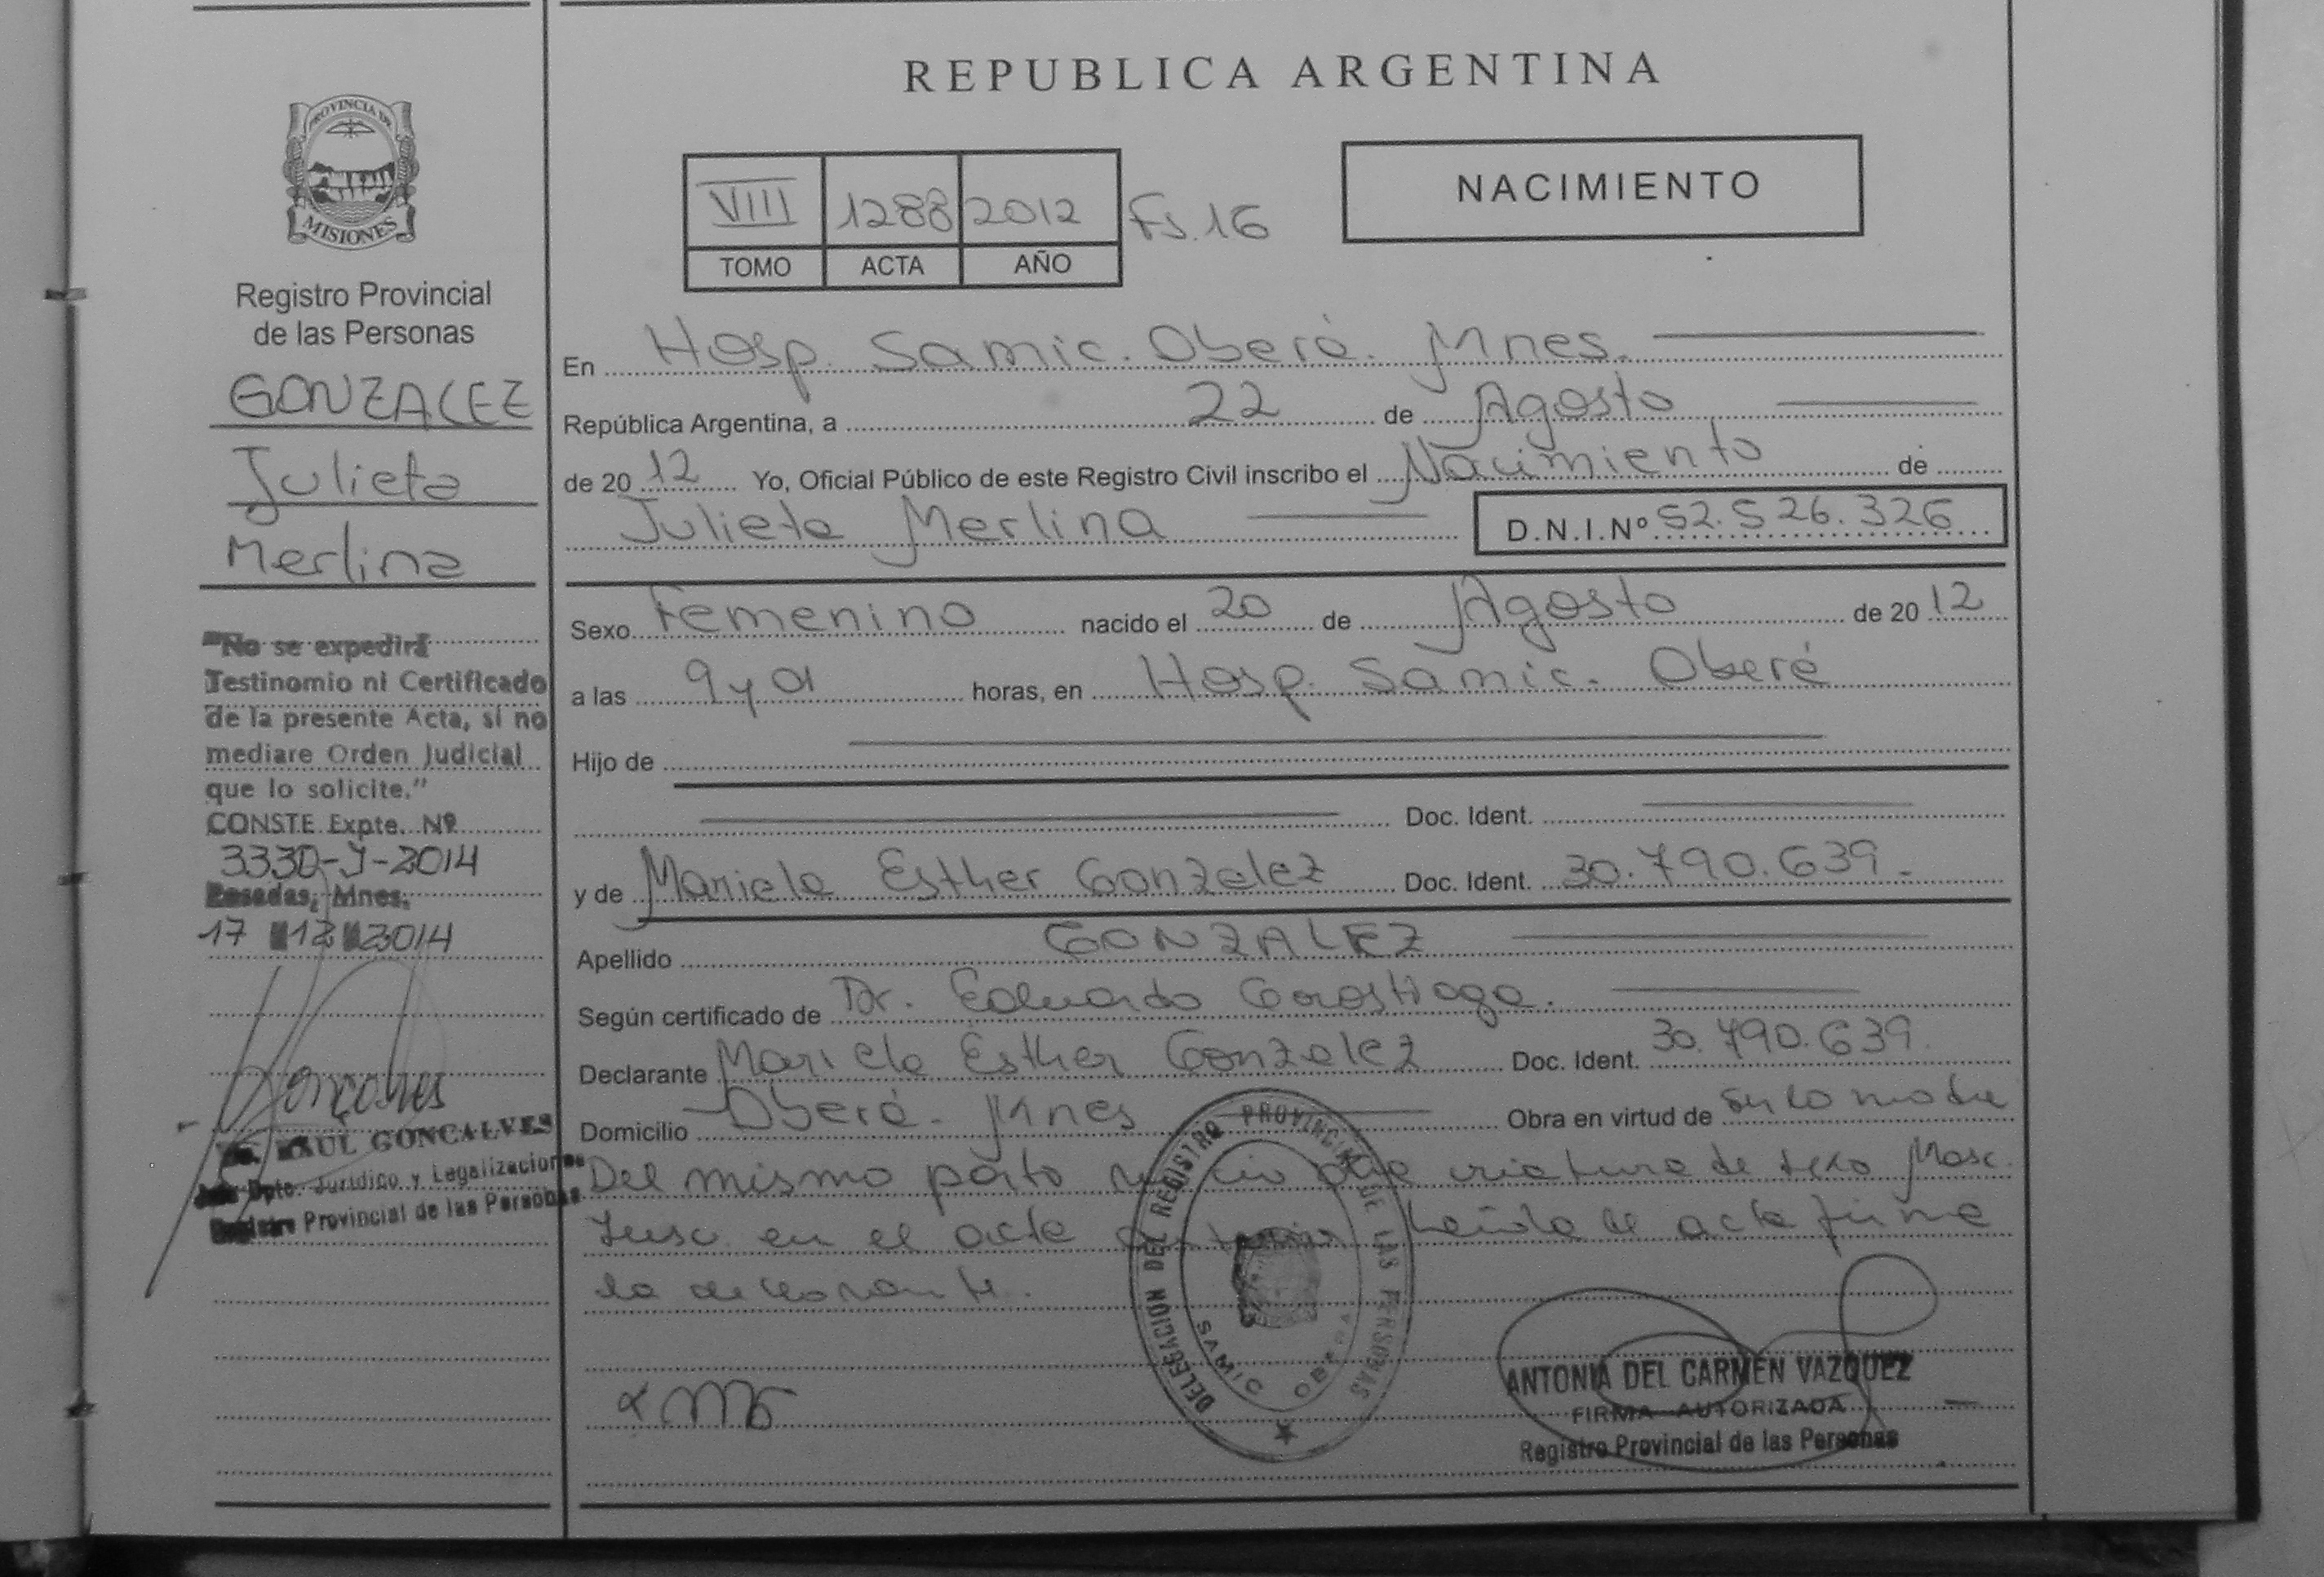 REPUBLICA ARGENTINA
PROVINCIA DE
MISIONES
Registro Provincial
de las Personas
GONZALEZ
Julieta
Merlina
"No se expedirá
Testinomio ni Certificado
de la presente Acta, si no
mediare Orden Judicial
que lo solicite."
CONSTE Expte. Nº
3330-J-2014
Posadas, Mnes.
17 12 2014
Goncalves
RAUL GONCALVES
Jefe Dpto. Jurídico y Legalizaciones
Registro Provincial de las Personas
VIII 1288 2012 Fs. 16
TOMO ACTA AÑO
NACIMIENTO
En Hosp. Samic. Oberá. Mnes.
República Argentina, a 22 de Agosto
de 2012 Yo, Oficial Público de este Registro Civil inscribo el Nacimiento de
Julieta Merlina D.N.I.Nº 52.526.326
Sexo Femenino nacido el 20 de Agosto de 2012
a las 9 y 01 horas, en Hosp. Samic. Oberá
Hijo de
Doc. Ident.
y de Mariela Esther Gonzalez Doc. Ident. 30.790.639.-
Apellido GONZALEZ
Según certificado de Dr. Eduardo Gorostiaga.
Declarante Mariela Esther Gonzalez Doc. Ident. 30.790.639.
Domicilio Oberá. Mnes Obra en virtud de ser la madre
Del mismo parto nació otra criatura de sexo Masc.
Insc. en el acta anterior. Leída el acta firma
la declarante.
DELEGACIÓN DEL REGISTRO PROVINCIAL DE LAS PERSONAS
SAMIC OBERA
ANTONIA DEL CARMEN VAZQUEZ
FIRMA AUTORIZADA
Registro Provincial de las Personas